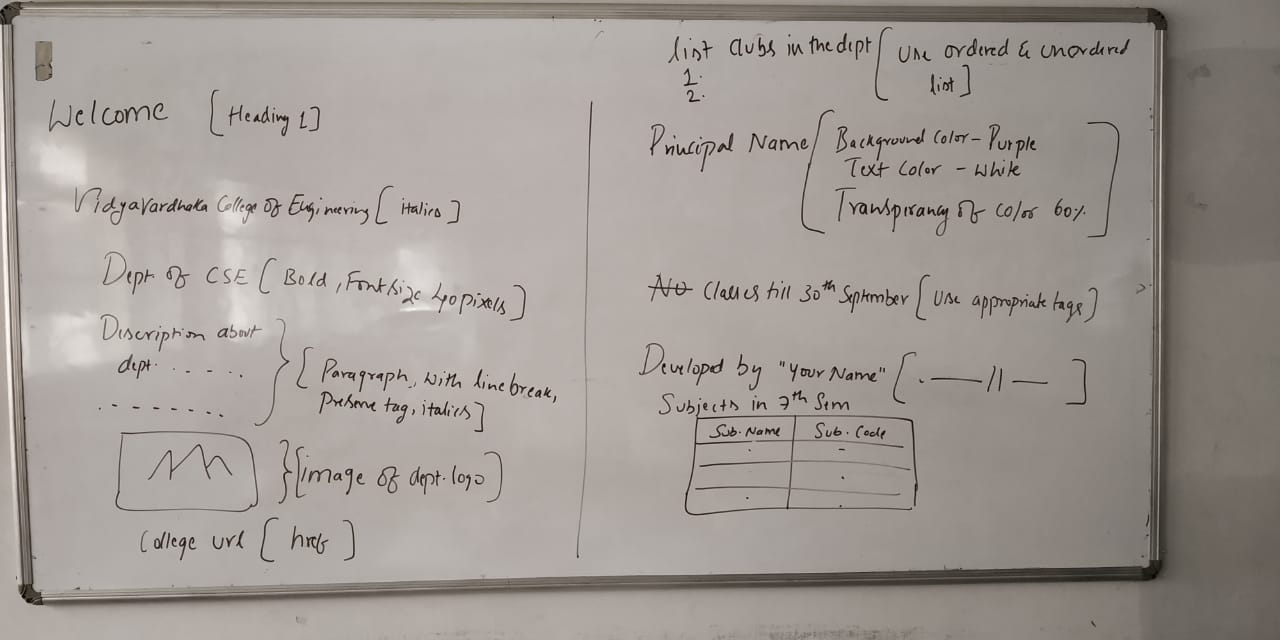 Welcome [Heading 1]
Vidyavardhaka College Of Engineering [italics]
Dept. of CSE [Bold, Font size 40 pixels]
Discription about
dept. . . . . . .
. - - - - - - -
[Paragraph, with line break,
Preserve tag, italics]
[image of dept. logo]
College url [href]
list clubs in the dept [Use ordered & unordered
list]
1.
2.
Principal Name [Background Color - Purple
Text Color - White
Transpirancy of color 60%]
No classes till 30th September [Use appropriate tags]
Developed by "Your Name" [. — 11 — ]
Subjects in 7th Sem
Sub. Name Sub. Code